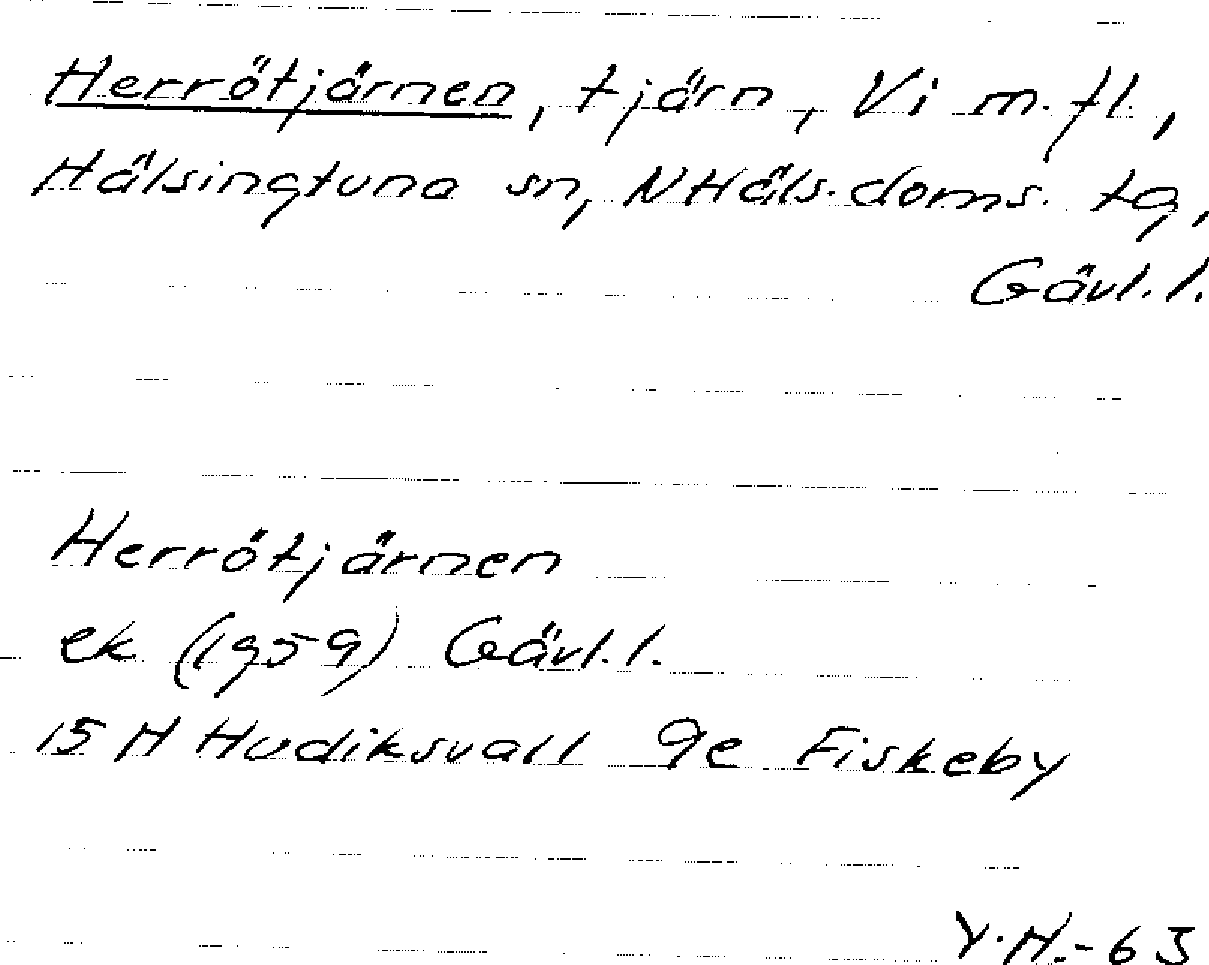 Herrötjärnen, tjärn, Vi m.fl.,
Hälsingtuna sn, N Häls. doms. tg,
Gävl. l.
Herrötjärnen
ek (1959) Gävl. l.
15 H Hudiksvall 9e Fiskeby
Y.H.-63